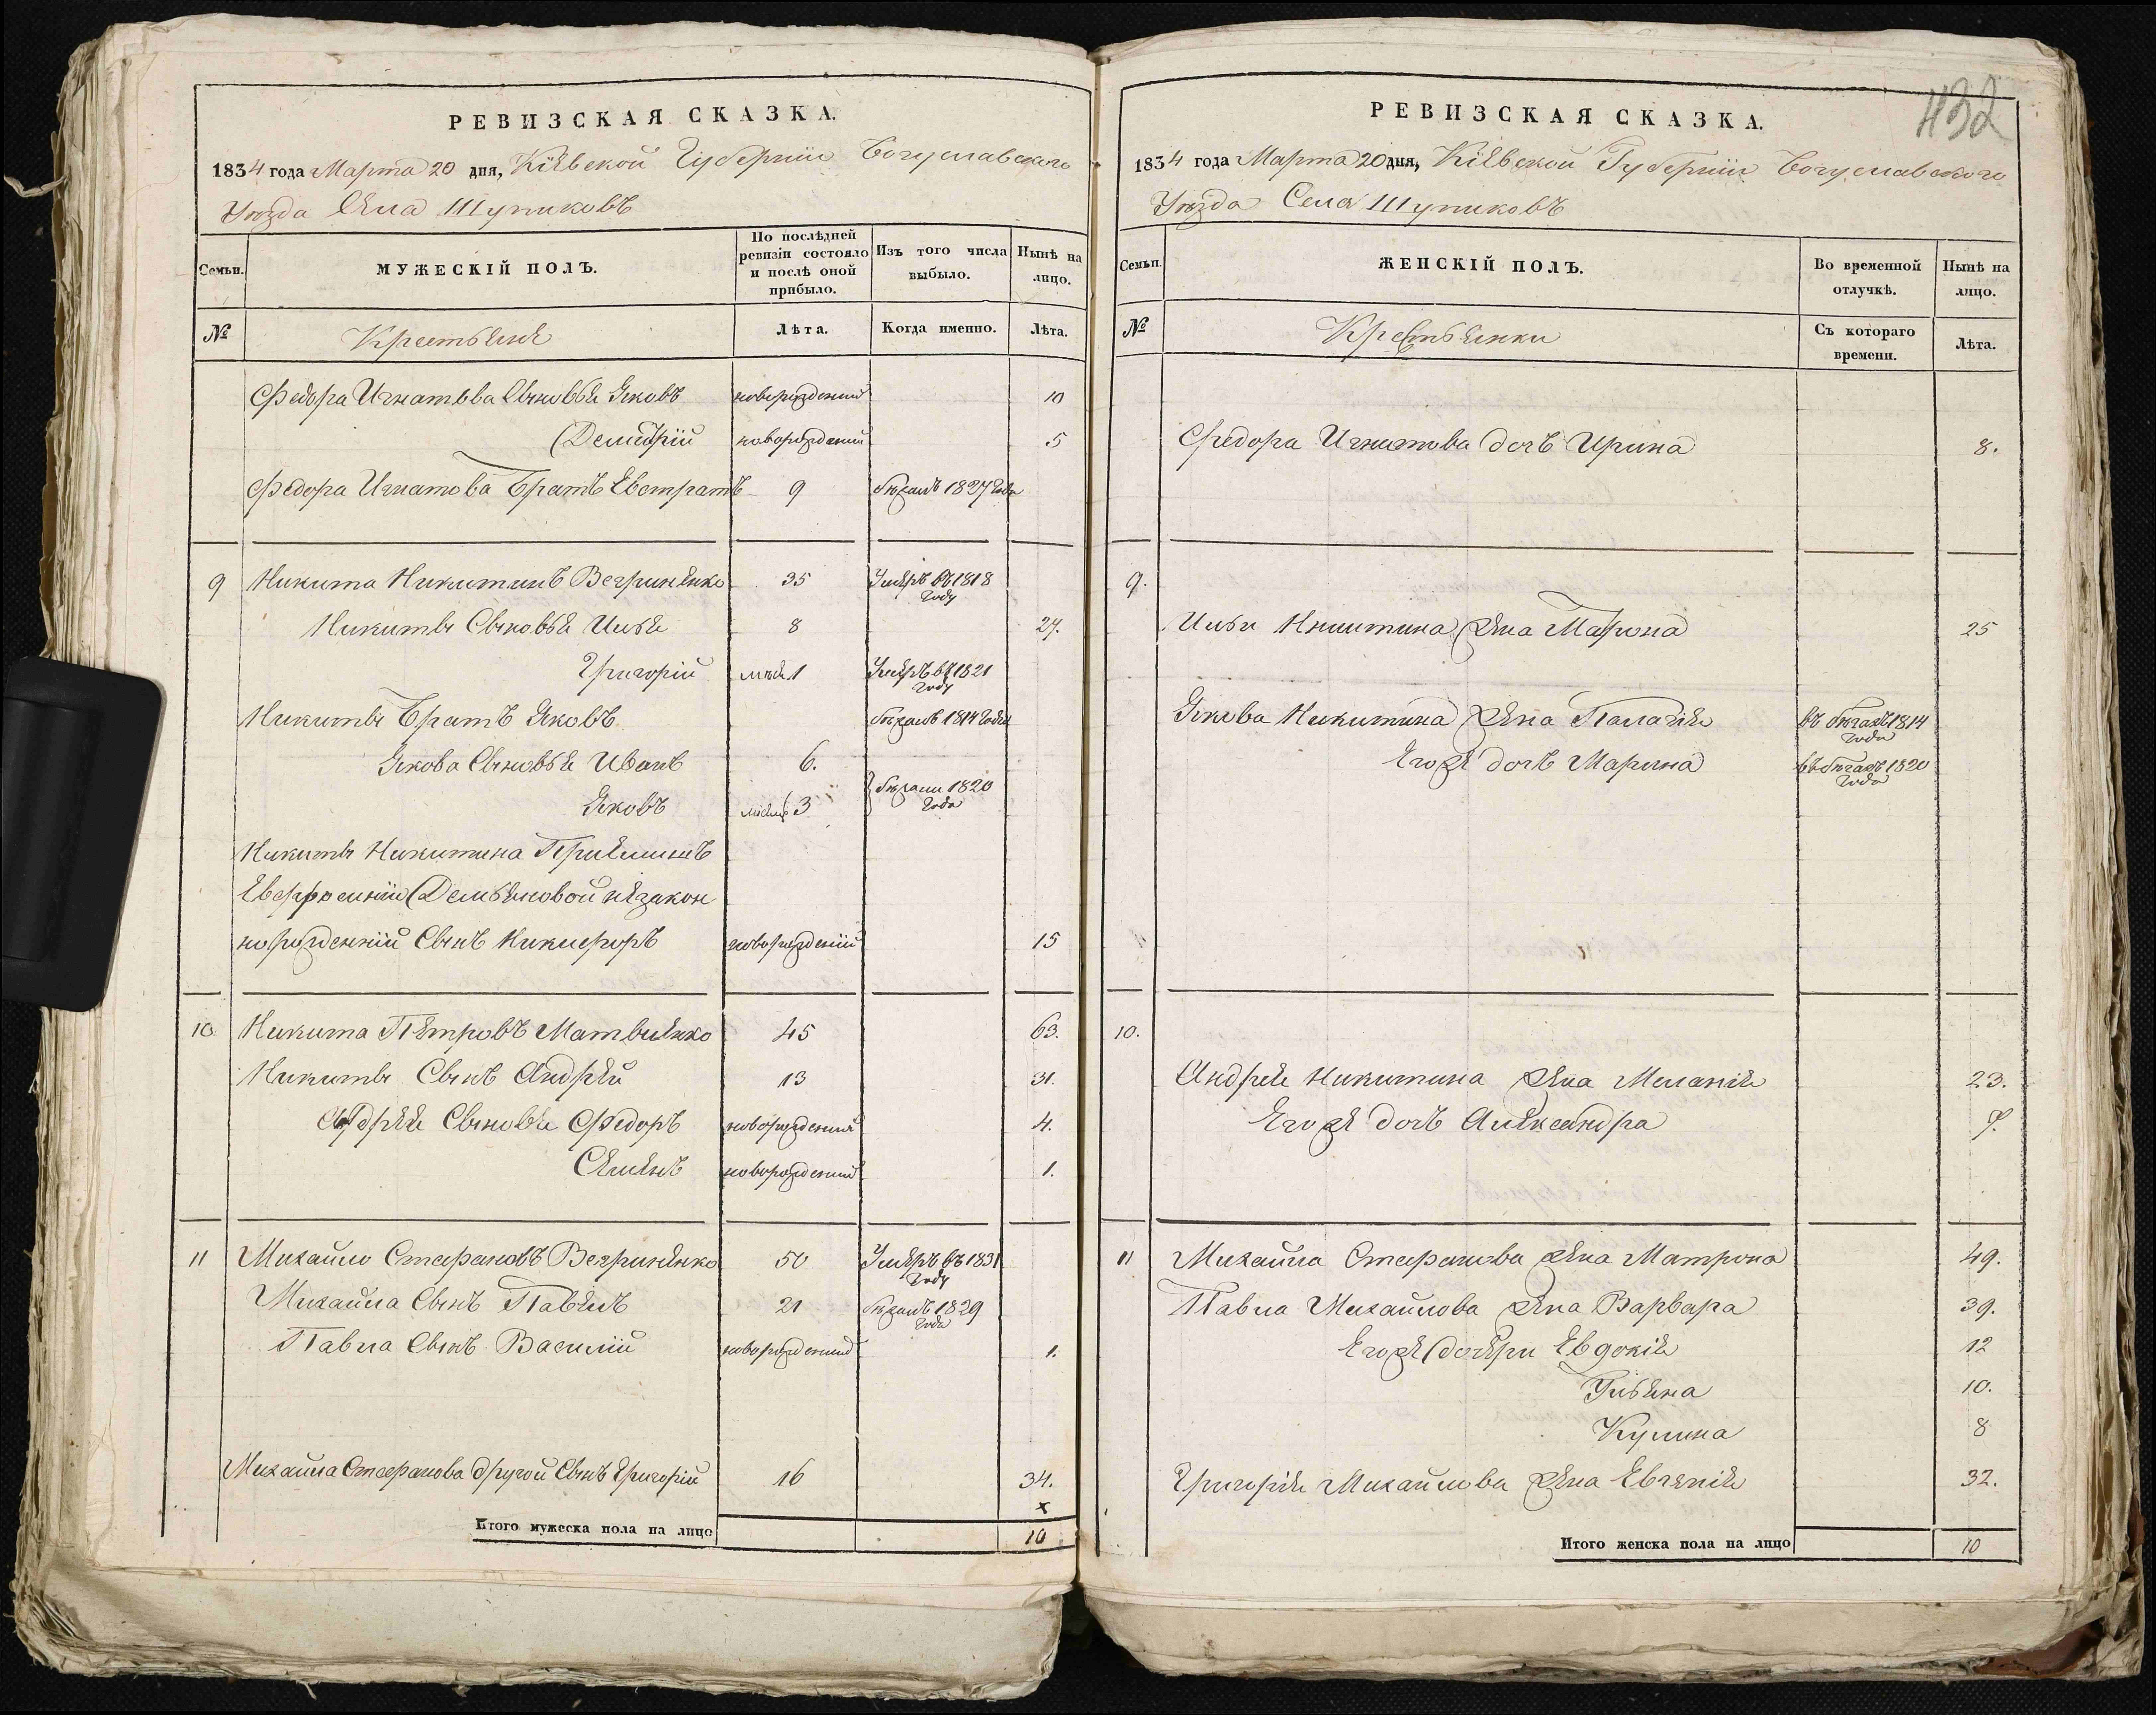 РЕВИЗСКАЯ СКАЗКА.
1834 года Марта 20 дня, Кіевской Губерніи Богуславского
Уезда Села Шупиковъ
Семьи.
МУЖЕСКІЙ ПОЛЪ.
По послѣдней ревизіи состояло и послѣ оной прибыло.
Изъ того числа выбыло.
Нынѣ на лицо.
№
Крестьяне
Лѣта.
Когда именно.
Лѣта.
Федора Игнатова Сыновья Яковъ новорожденый 10
Демитрій новорожденый 5
Федора Игнатова Братъ Евстратъ 9 бѣжалъ 1827 года
9 Никита Никитинъ Вегриненко 35 Умеръ въ 1818 году
Никиты Сыновья Илья 8 27.
Григорій 1 Умеръ въ 1821 году
Никиты Братъ Яковъ бѣжалъ 1814 года
Якова Сыновья Иванъ 6.
Яковъ 3 бѣжали 1820 года
Никиты Никитина Приемышъ
Евфросиніи Демьяновой незакон
норожденній Сынъ Никифоръ новорожденій 15
10 Никита Петровъ Матвиенко 45 63.
Никиты Сынъ Андрей 13 31.
Андрея Сыновья Федоръ новорожденый 4.
Семенъ новорожденый 1.
11 Михайло Стефановъ Вегриненко 50 Умеръ въ 1831 году
Михайла Сынъ Павелъ 21 бѣжалъ 1829 года
Павла Сынъ Василій новорожденый 1.
Михайла Стефанова другой Сынъ Григорій 16 34.
х
Итого мужеска пола на лицо 10
432
РЕВИЗСКАЯ СКАЗКА.
1834 года Марта 20 дня, Кіевской Губерніи Богуславского
Уѣзда Села Шупиковъ
Семьи.
ЖЕНСКІЙ ПОЛЪ.
Во временной отлучкѣ.
Нынѣ на лицо.
№
Крестьянки
Съ котораго времени.
Лѣта.
Федора Игнатова дочь Ирина 8.
9.
Ильи Никитина жена Марина 25
Якова Никитина жена Палагія въ бѣгахъ 1814 года
Его же дочь Марина въ бѣгахъ 1820 года
10.
Андрея Никитина жена Меланія 23.
Его же дочь Александра
11 Михайла Стефанова жена Матрона 49.
Павла Михайлова жена Варвара 39.
Его же дочери Евдокія 12
Ульяна 10.
Кулина 8
Григорія Михайлова жена Евгенія 32.
Итого женска пола на лицо 10